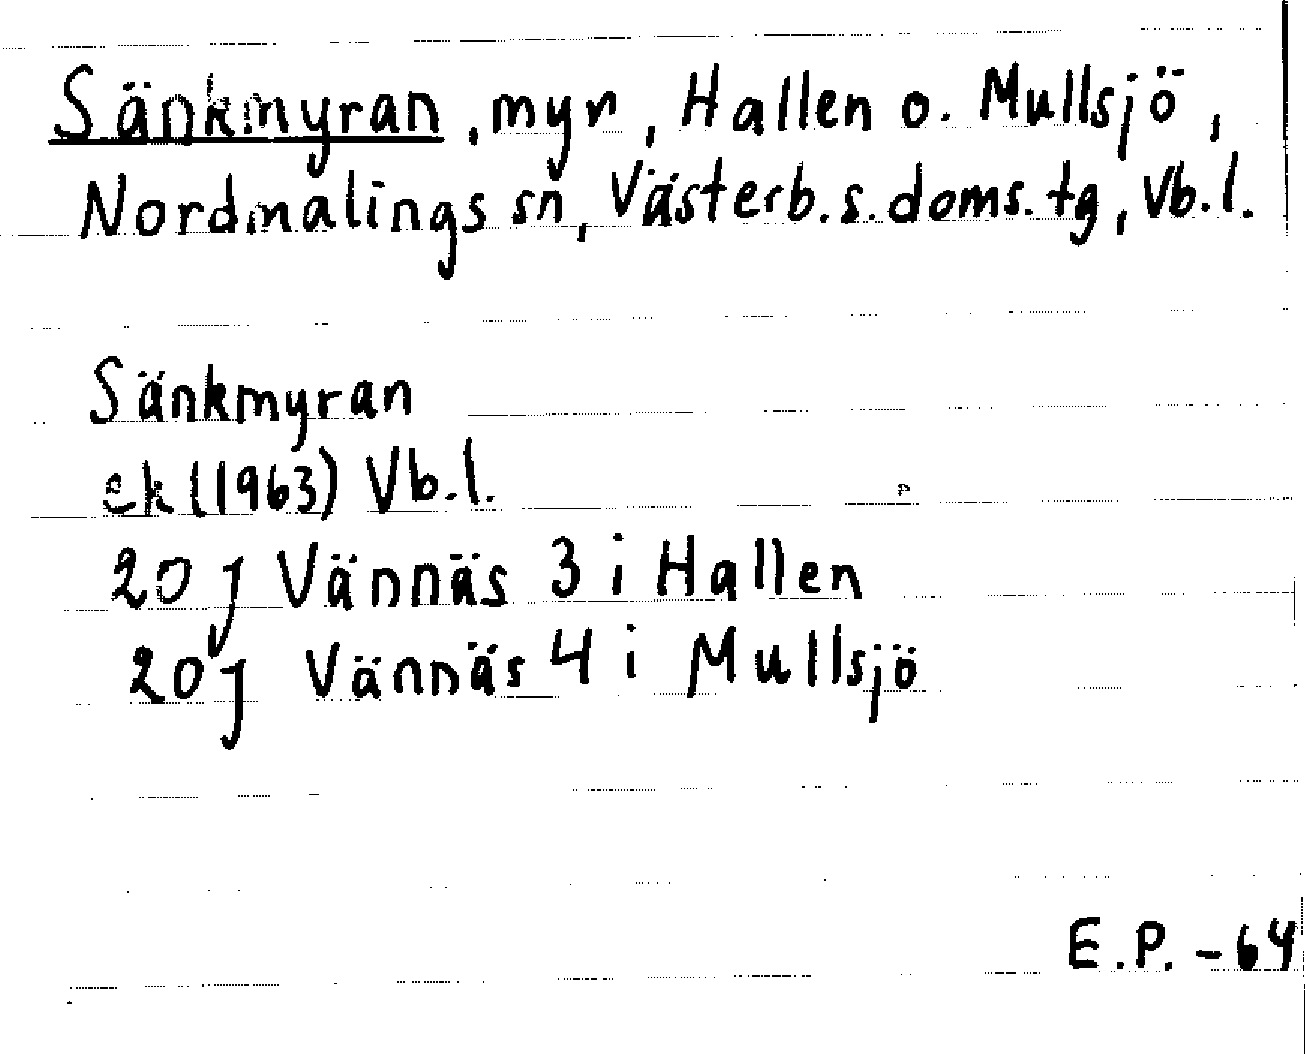 Sänkmyran, myr, Hallen o. Mullsjö,
Nordmalings sn, Västerb. s. doms. tg, Vb.l.
Sänkmyran
ek (1963) Vb.l.
20 J Vännäs 3 i Hallen
20 J Vännäs 4 i Mullsjö
E.P. - 64